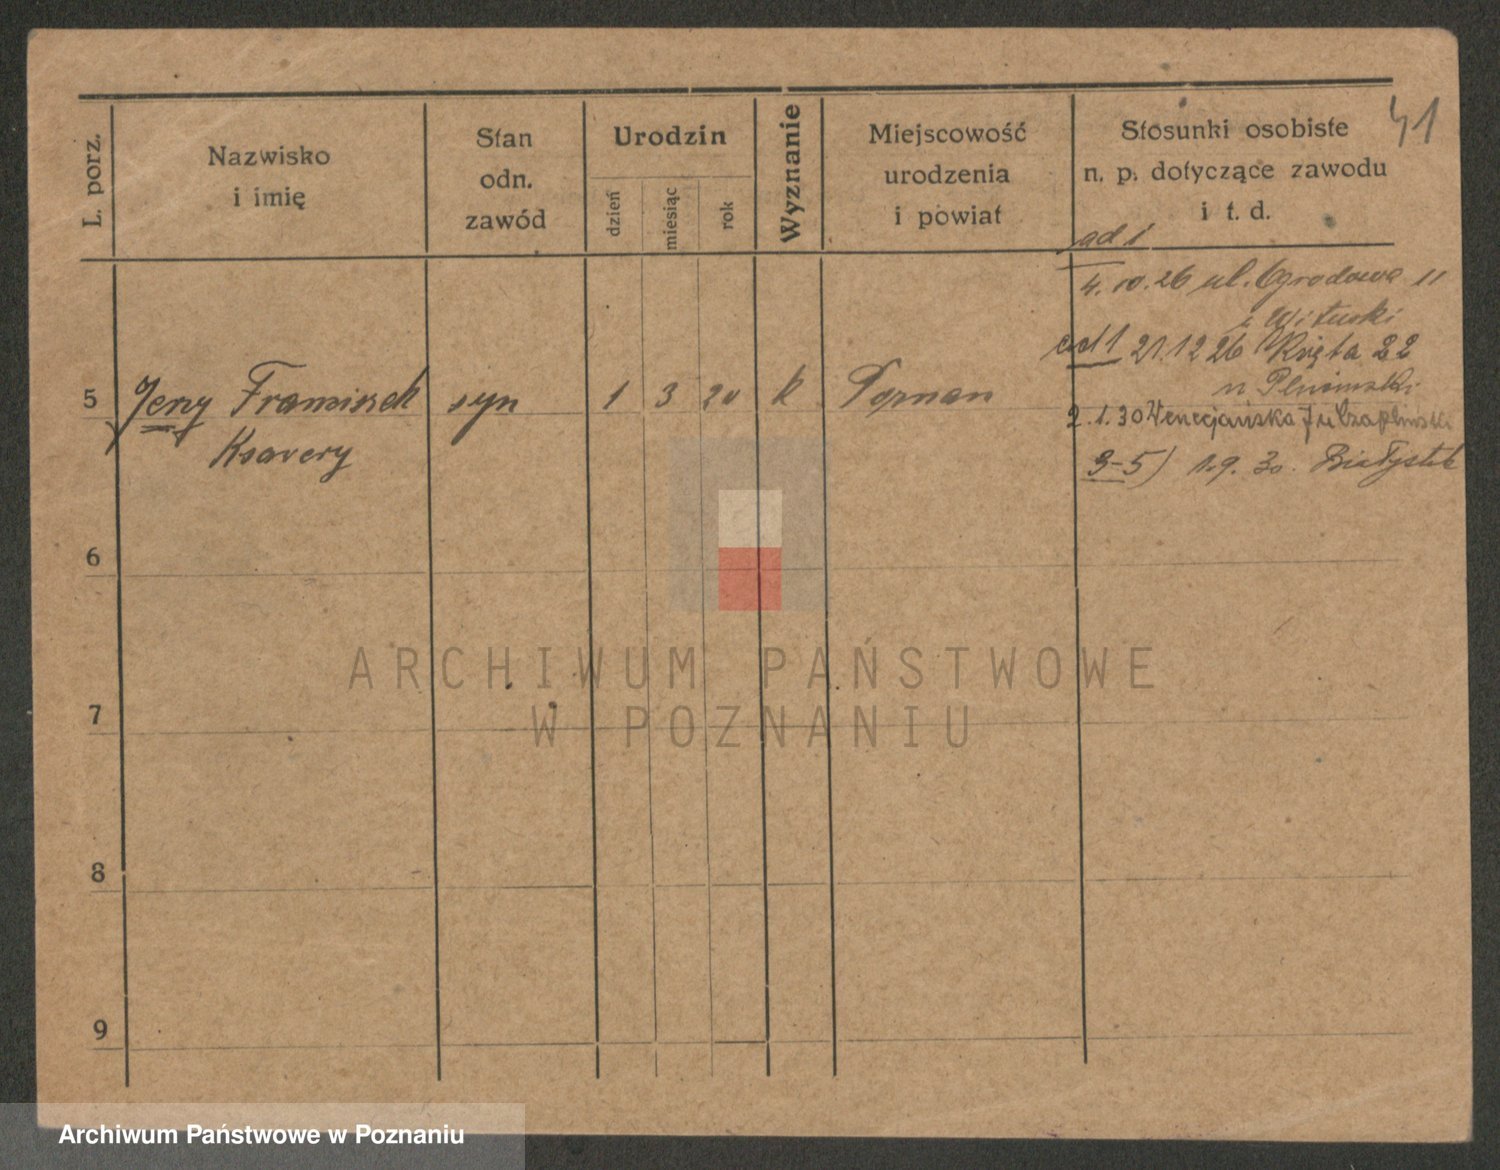 41
L. porz.
Nazwisko
i imię
Stan
odn.
zawód
Urodzin
dzień
miesiąc
rok
Wyznanie
Miejscowość
urodzenia
i powiat
Stosunki osobiste
n. p. dotyczące zawodu
i t. d.
ad 1
4.10.26 ul. Ogrodowa 11
u Wituski
ad 1 21.12 26 Kręta 22
u
5 Jerzy Franciszek syn 1 3 20 k Poznan
Ksavery
2.1.30 Wenecjańska 7 u Czaplinski
3-5) 1.9.30. Białystok
6
7
8
9
ARCHIWUM PAŃSTWOWE
W POZNANIU
Archiwum Państwowe w Poznaniu